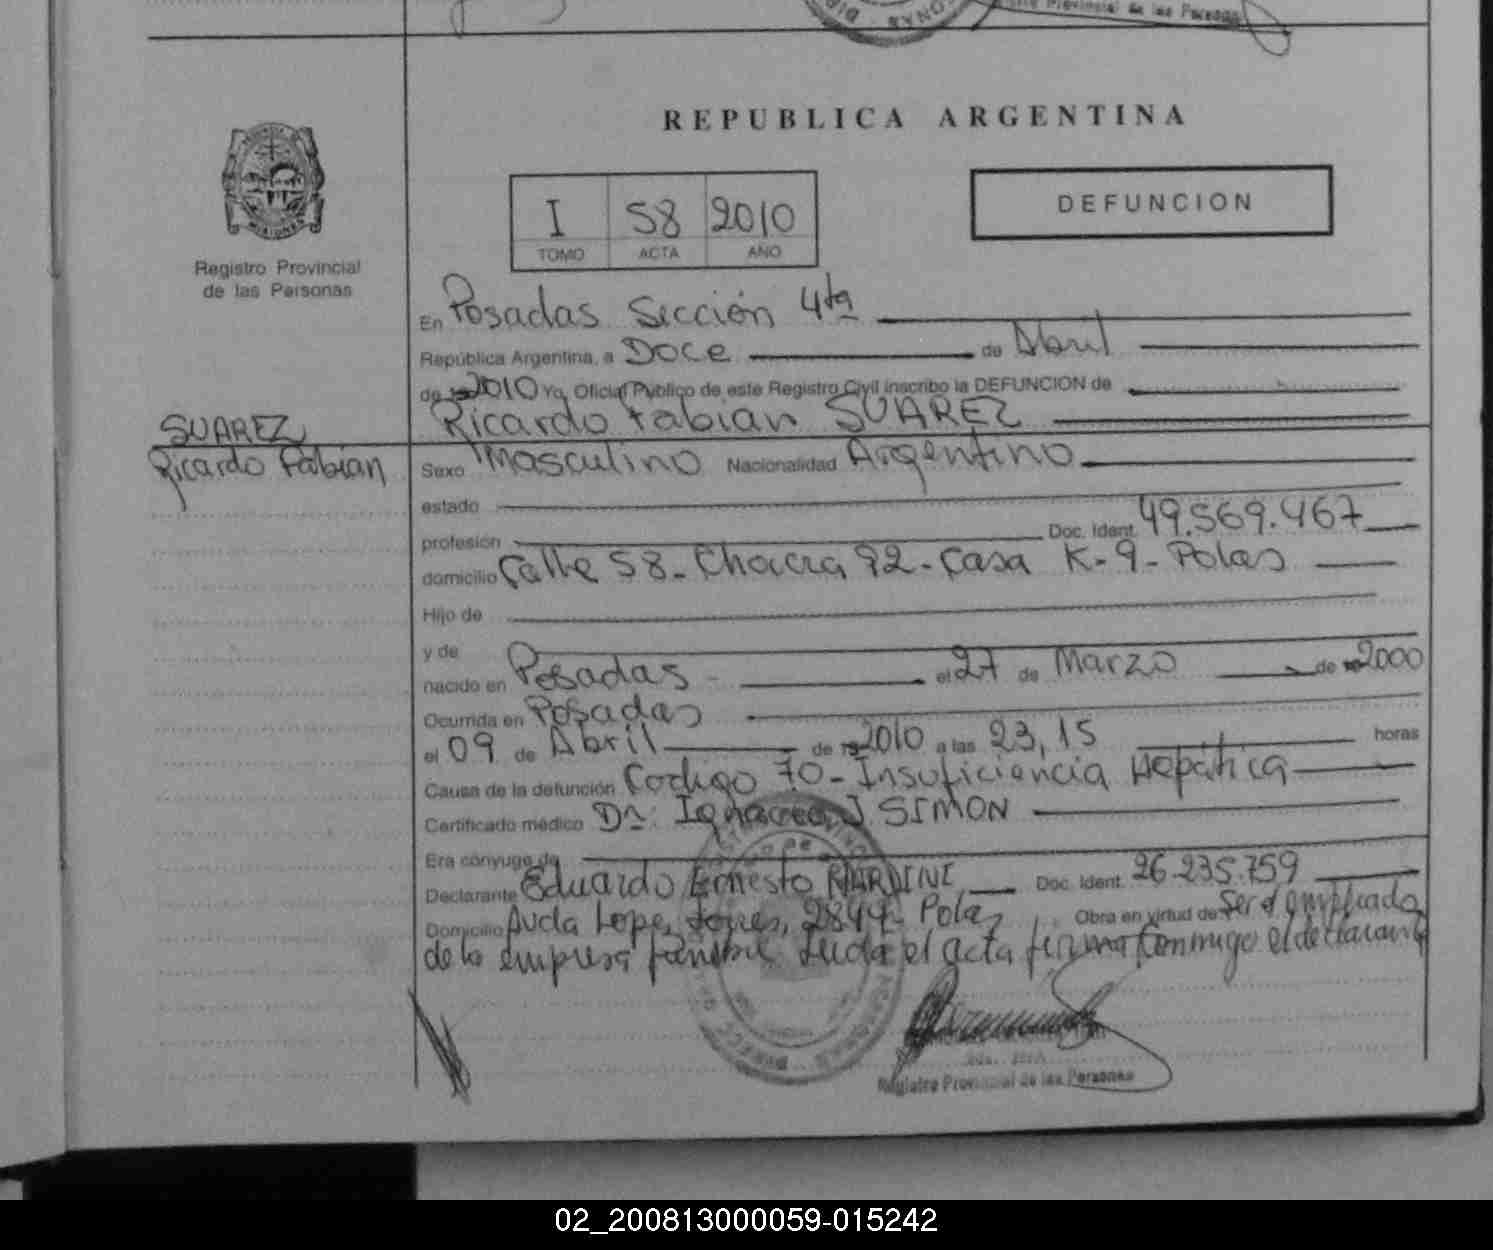 Provincial de las Personas
REPUBLICA ARGENTINA
I 58 2010
TOMO ACTA AÑO
DEFUNCION
MISIONES
Registro Provincial
de las Personas
En Posadas Sección 4ta
República Argentina, a Doce de Abril
de 2010 Yo, Oficial Público de este Registro Civil inscribo la DEFUNCION de
Ricardo Fabian SUAREZ
SUAREZ
Ricardo Fabian
Sexo Masculino Nacionalidad Argentino
estado
profesión Doc. Ident. 49.569.467
domicilio Calle 58- Chacra 92- Casa K-9- Pdas
Hijo de
y de
nacido en Posadas - el 27 de Marzo de 2000
Ocurrida en Posadas
el 09 de Abril de 2010 a las 23,15 horas
Causa de la defunción Codigo 70- Insuficiencia Hepática
Certificado médico Dr: Ignacio J. SIMON
Era cónyuge de
Declarante Eduardo Ernesto Doc. Ident. 26.235.759
Domicilio Avda Lopez Torres, 2849- Pdas Obra en virtud de Ser el empleado
de la empresa fúnebre Leida el acta firma conmigo el declarante
Registro Provincial de las Personas
02_200813000059-015242